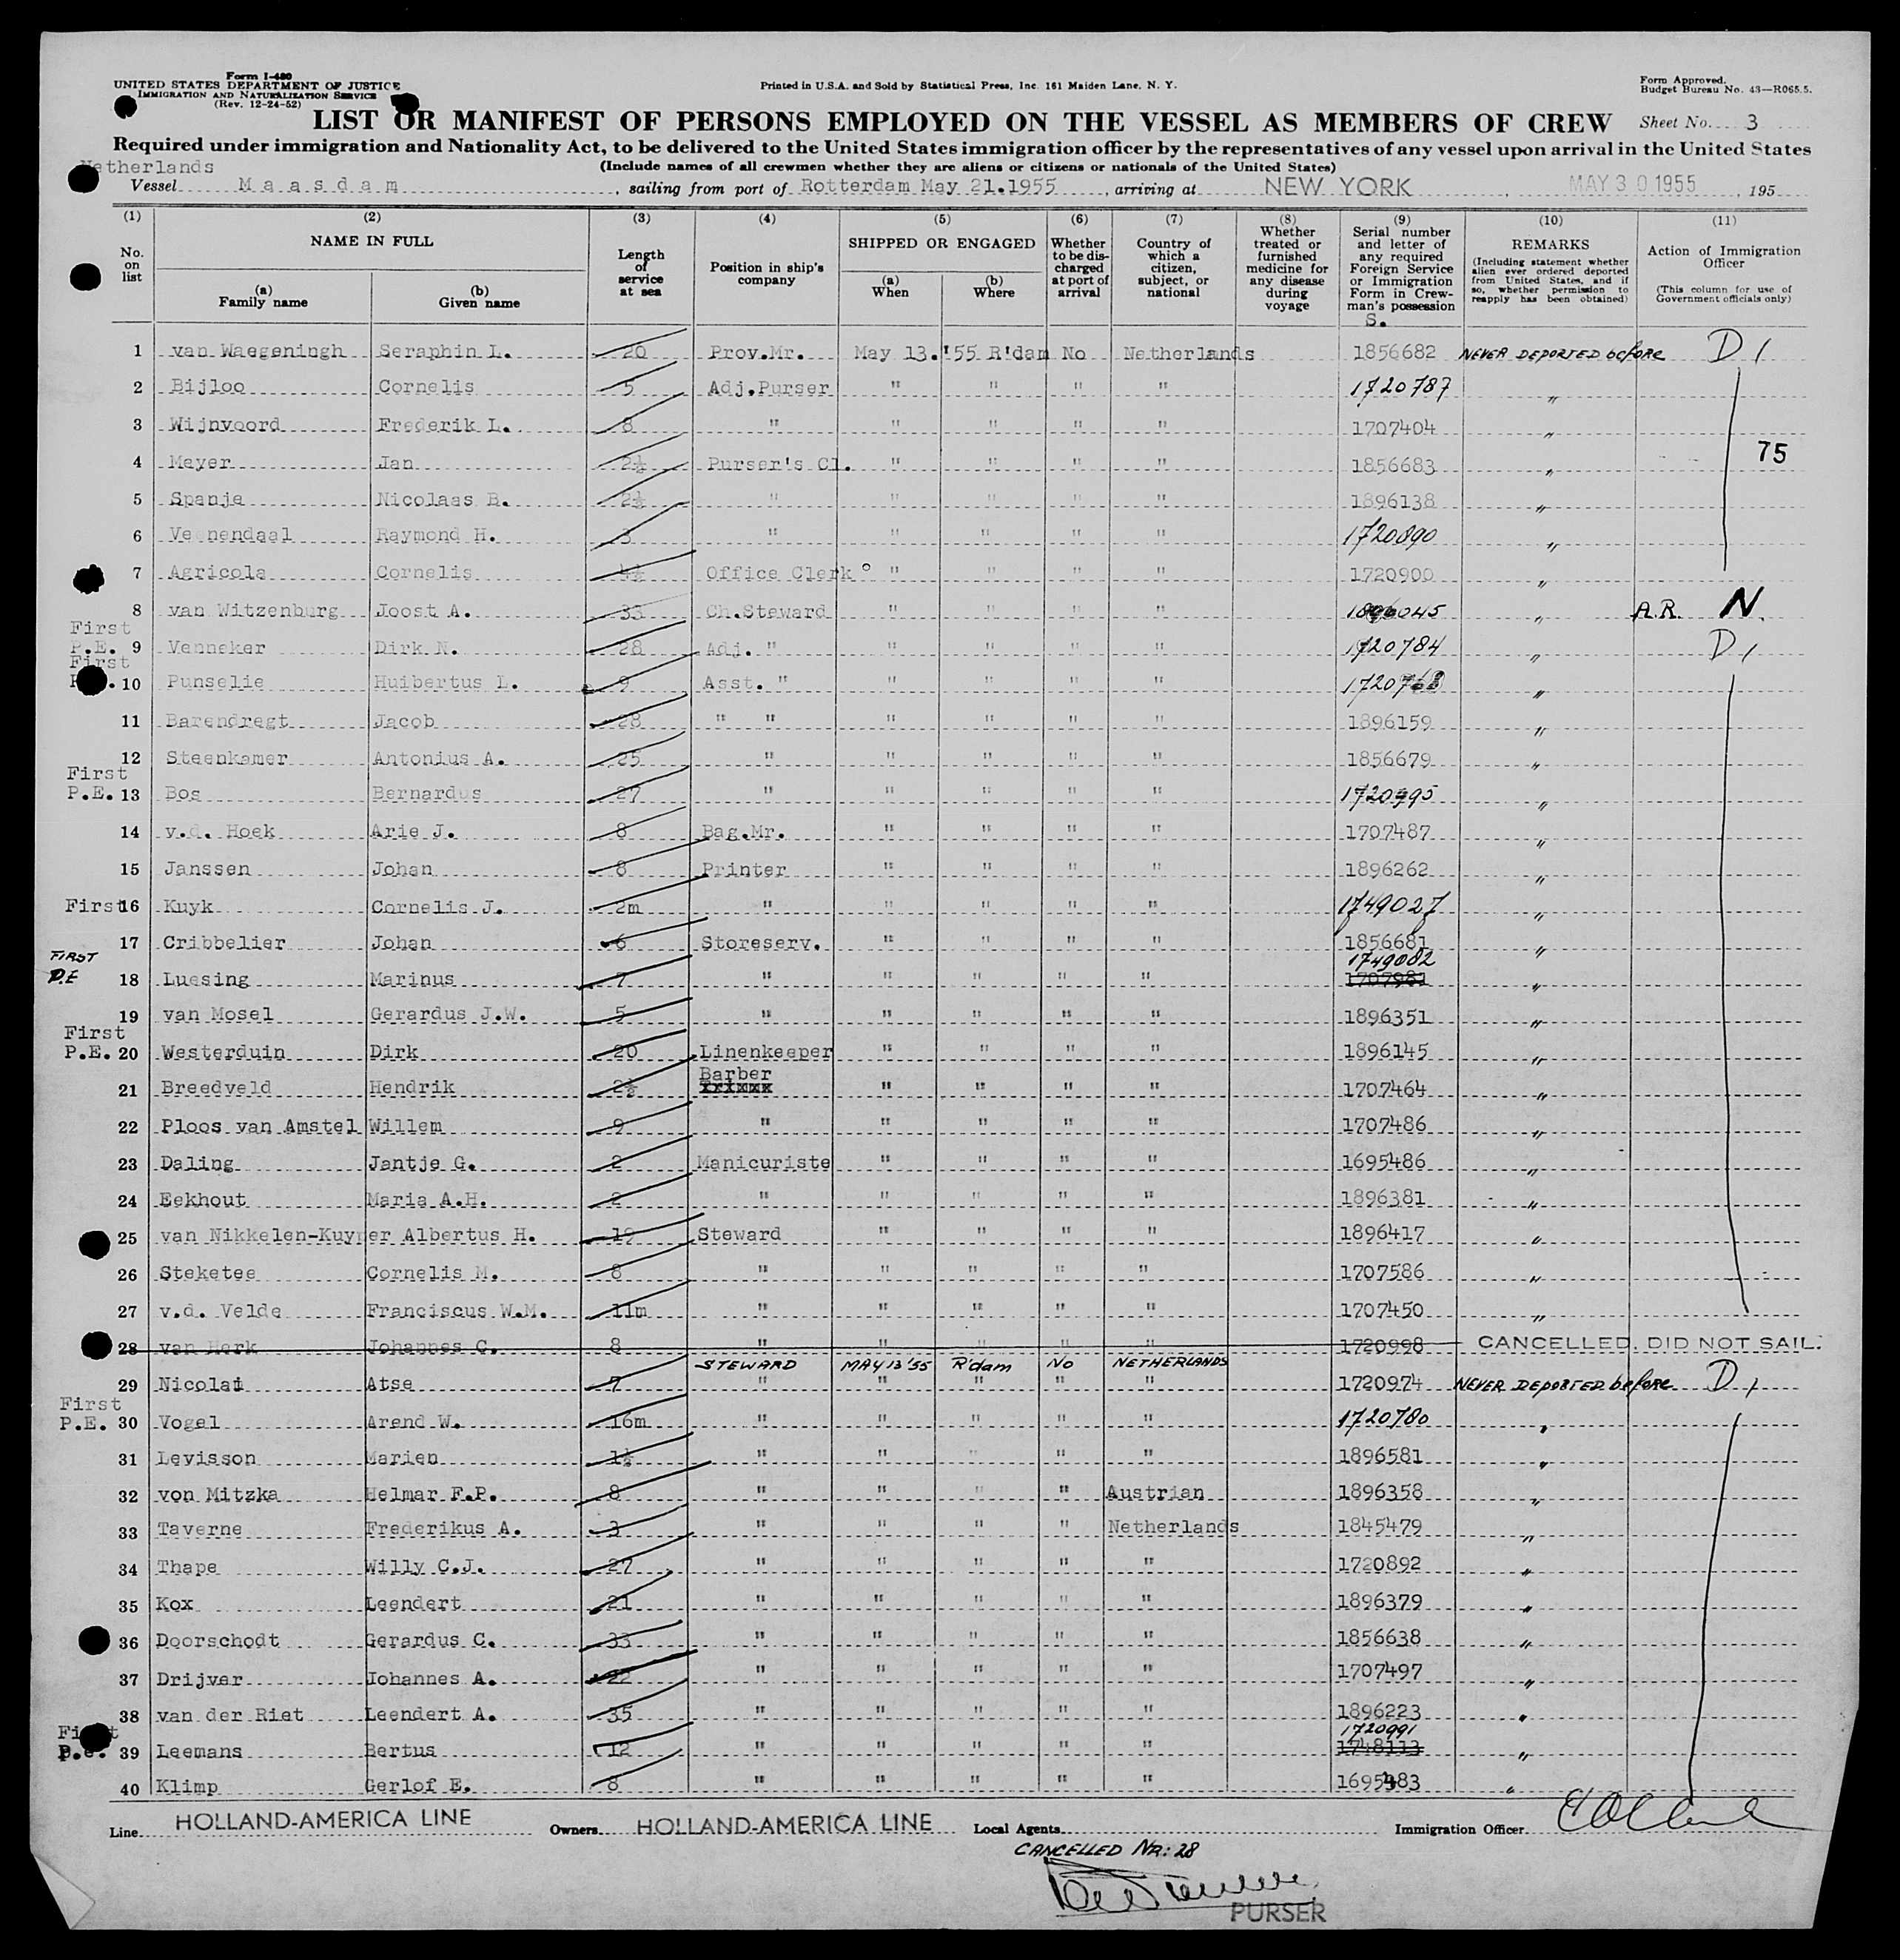 Form I-480
UNITED STATES DEPARTMENT OF JUSTICE
IMMIGRATION AND NATURALIZATION SERVICE
(Rev. 12-24-52)
Printed in U.S.A. and Sold by Statistical Press, Inc. 161 Maiden Lane, N. Y.
Form Approved.
Budget Bureau No. 43—R065.5.
LIST OR MANIFEST OF PERSONS EMPLOYED ON THE VESSEL AS MEMBERS OF CREW Sheet No. 3
Required under immigration and Nationality Act, to be delivered to the United States immigration officer by the representatives of any vessel upon arrival in the United States
(Include names of all crewmen whether they are aliens or citizens or nationals of the United States)
Netherlands
Vessel Maasdam, sailing from port of Rotterdam May 21.1955, arriving at NEW YORK, MAY 30 1955, 195
(1) No. on list
(2) NAME IN FULL (a) Family name (b) Given name
(3) Length of service at sea
(4) Position in ship's company
(5) SHIPPED OR ENGAGED (a) When (b) Where
(6) Whether to be discharged at port of arrival
(7) Country of which a citizen, subject, or national
(8) Whether treated or furnished medicine for any disease during voyage
(9) Serial number and letter of any required Foreign Service or Immigration Form in Crewman's possession S.
(10) REMARKS (Including statement whether alien ever ordered deported from United States, and if so, whether permission to reapply has been obtained)
(11) Action of Immigration Officer (This column for use of Government officials only)
1 van Waegeningh Seraphin L. 20 Prov.Mr. May 13.'55 R'dam No Netherlands 1856682 NEVER DEPORTED before D 1
2 Bijloo Cornelis 5 Adj.Purser " " " " 1720787 "
3 Wijnvoord Frederik L. 8 " " " " " 1707404 "
4 Meyer Jan 2½ Purser's Cl. " " " " 1856683 " 75
5 Spanje Nicolaas B. 2½ " " " " " 1896138 "
6 Veenendaal Raymond H. 3 " " " " " 1720890 "
7 Agricola Cornelis 4½ Office Clerk " " " " 1720900 "
8 van Witzenburg Joost A. 33 Ch.Steward " " " " 1896045 " A.R. N.
First P.E. 9 Venneker Dirk N. 28 Adj. " " " " " 1720784 " D 1
First P.E. 10 Punselie Huibertus L. 9 Asst. " " " " " 1720768 "
11 Barendregt Jacob 28 " " " " " " 1896159 "
12 Steenkamer Antonius A. 25 " " " " " 1856679 "
First P.E. 13 Bos Bernardus 27 " " " " " 1720995 "
14 v.d. Hoek Arie J. 8 Bag.Mr. " " " " 1707487 "
15 Janssen Johan 8 Printer " " " " 1896262 "
First 16 Kuyk Cornelis J. 2m " " " " " 1749027 "
17 Cribbelier Johan 6 Storeserv. " " " " 1856681 "
FIRST P.E 18 Luesing Marinus 7 " " " " " 1749082 1707981 "
19 van Mosel Gerardus J.W. 5 " " " " " 1896351 "
First P.E. 20 Westerduin Dirk 20 Linenkeeper " " " " 1896145 "
21 Breedveld Hendrik 2½ Barber " " " " 1707464 "
22 Ploos van Amstel Willem 9 " " " " " 1707486 "
23 Daling Jantje G. 2 Manicuriste " " " " 1695486 "
24 Eekhout Maria A.H. 2 " " " " " 1896381 "
25 van Nikkelen-Kuyper Albertus H. 19 Steward " " " " 1896417 "
26 Steketee Cornelis M. 8 " " " " " 1707586 "
27 v.d. Velde Franciscus W.M. 11m " " " " " 1707450 "
28 van Herk Johannes C. 8 " " " " " 1720998 CANCELLED. DID NOT SAIL.
STEWARD MAY 13'55 R'dam No NETHERLANDS
29 Nicolai Atse 7 " " " " " 1720974 NEVER DEPORTED before D 1
First P.E. 30 Vogel Arend W. 16m " " " " " 1720780 "
31 Levisson Marien 1½ " " " " " 1896581 "
32 von Mitzka Helmar F.P. 8 " " " " Austrian 1896358 "
33 Taverne Frederikus A. 3 " " " " Netherlands 1845479 "
34 Thape Willy C.J. 27 " " " " " 1720892 "
35 Kox Leendert 21 " " " " " 1896379 "
36 Doorschodt Gerardus C. 33 " " " " " 1856638 "
37 Drijver Johannes A. 22 " " " " " 1707497 "
38 van der Riet Leendert A. 35 " " " " " 1896223 "
First P.e. 39 Leemans Bertus 12 " " " " " 1720991 1748113 "
40 Klimp Gerlof E. 8 " " " " " 1695483 "
Line HOLLAND-AMERICA LINE Owners HOLLAND-AMERICA LINE Local Agents Immigration Officer
CANCELLED NR: 28
PURSER